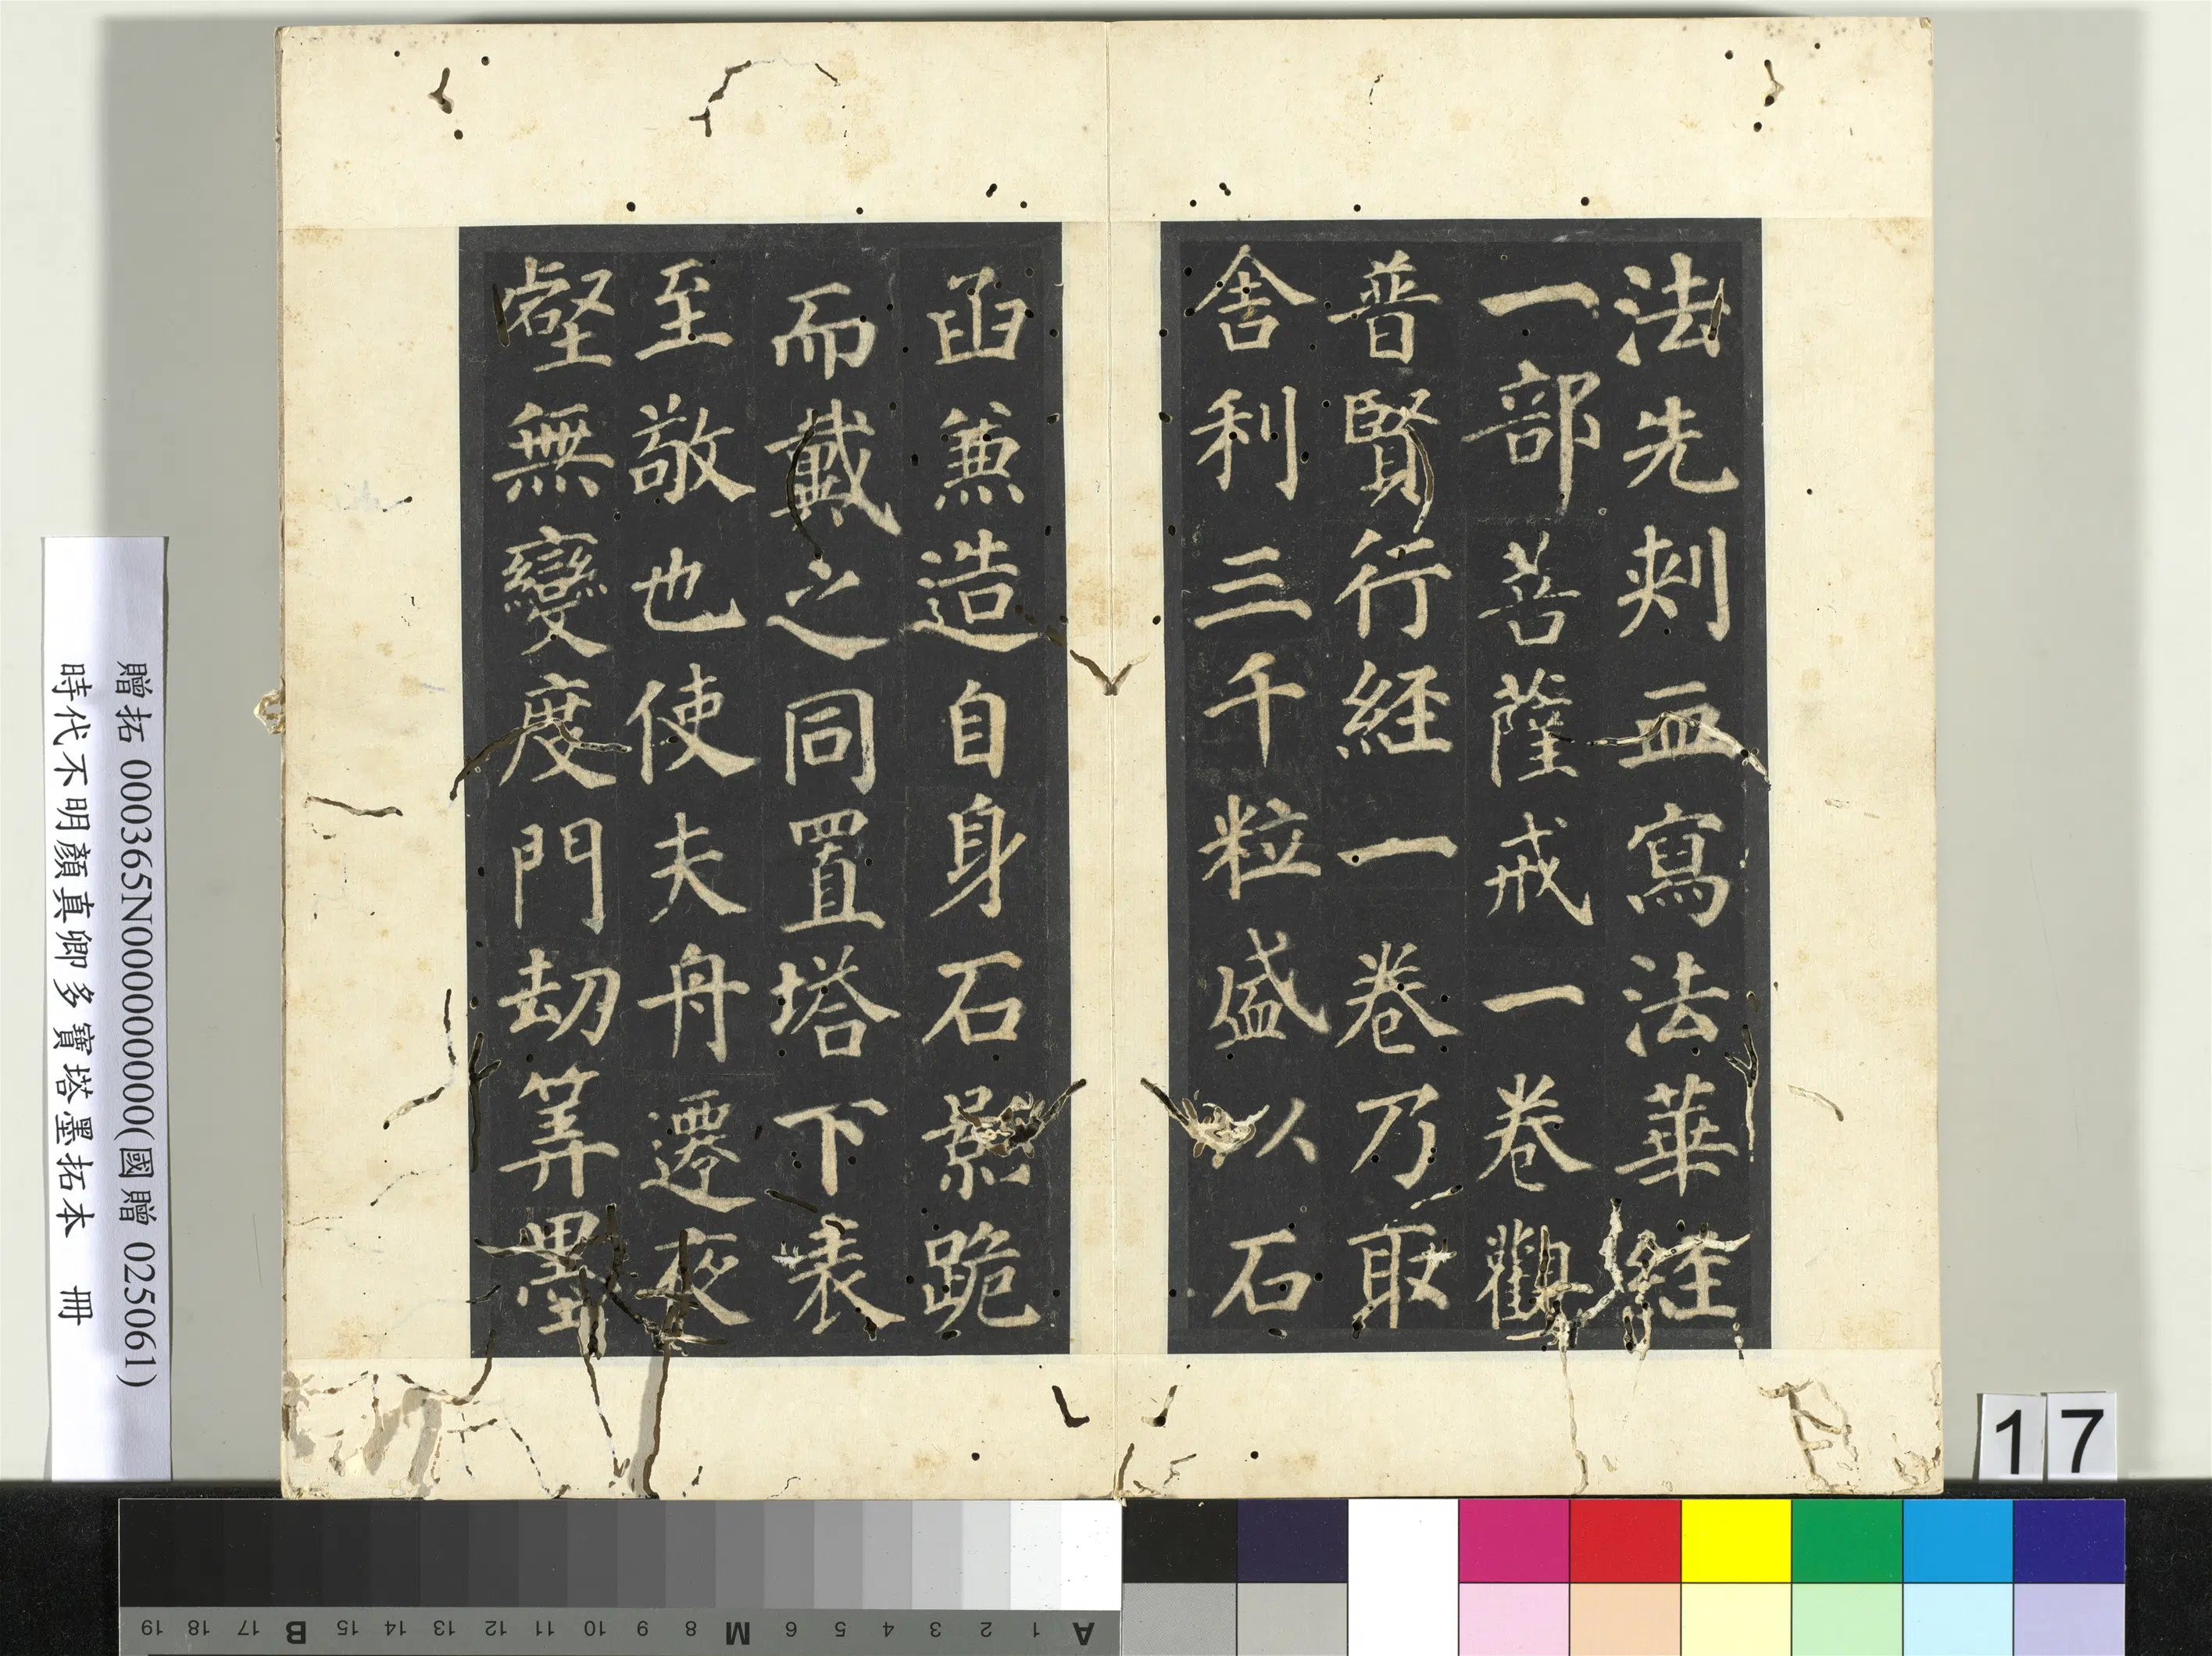 法先刾血寫法華經
一部菩薩戒一卷觀
普賢行經一卷乃取
舍利三千粒盛以石
函兼造自身石影跪
而戴之同置塔下表
至敬也使夫舟遷夜
壑無變度門劫筭墨
贈拓 000365N000000000(國贈 025061)
時代不明顏真卿多寶塔墨拓本 冊
17
19 18 17 B 15 14 13 12 11 10 9 8 M 6 5 4 3 2 1 A